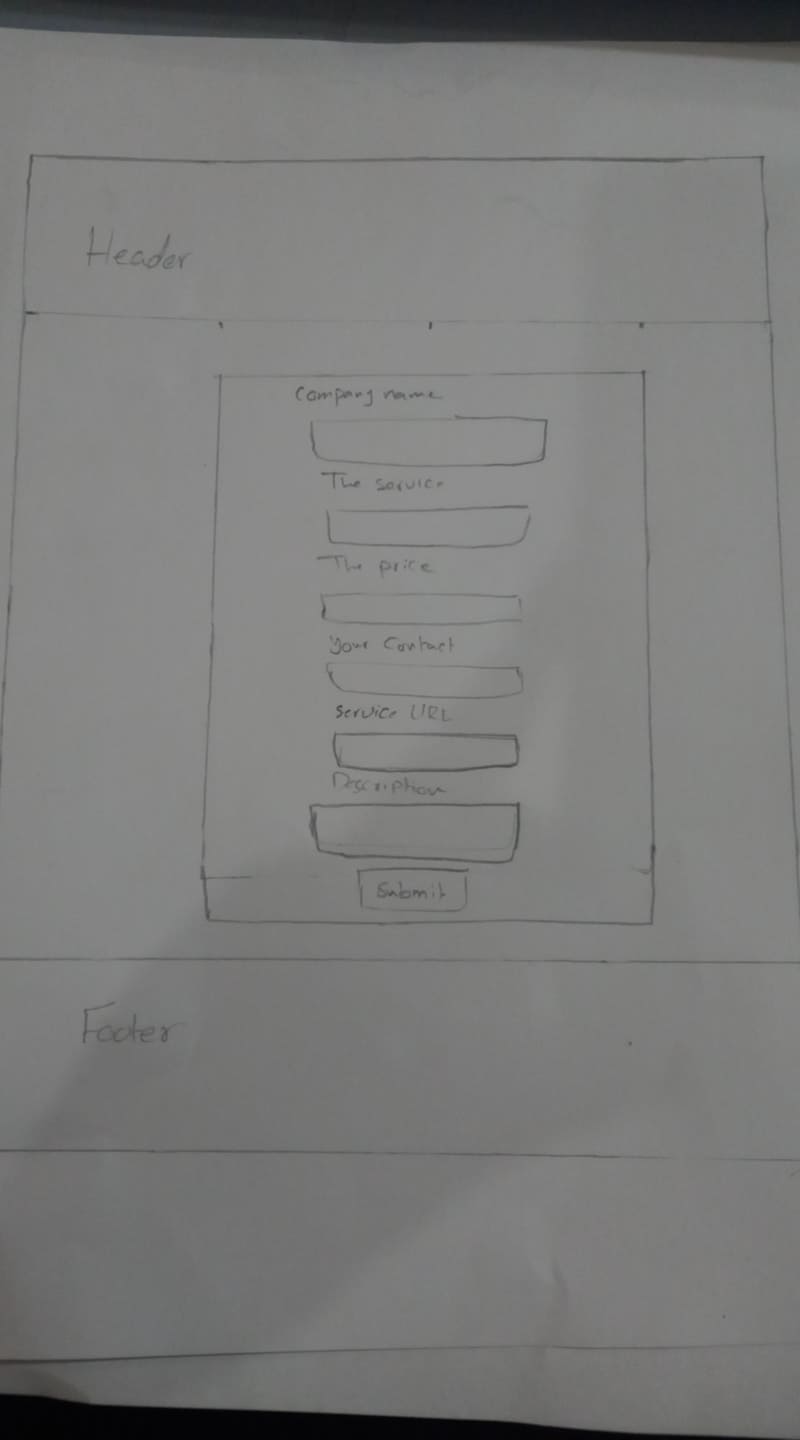 Header
Company name
The service
The price
Your Contact
Service URL
Description
Submit
Footer